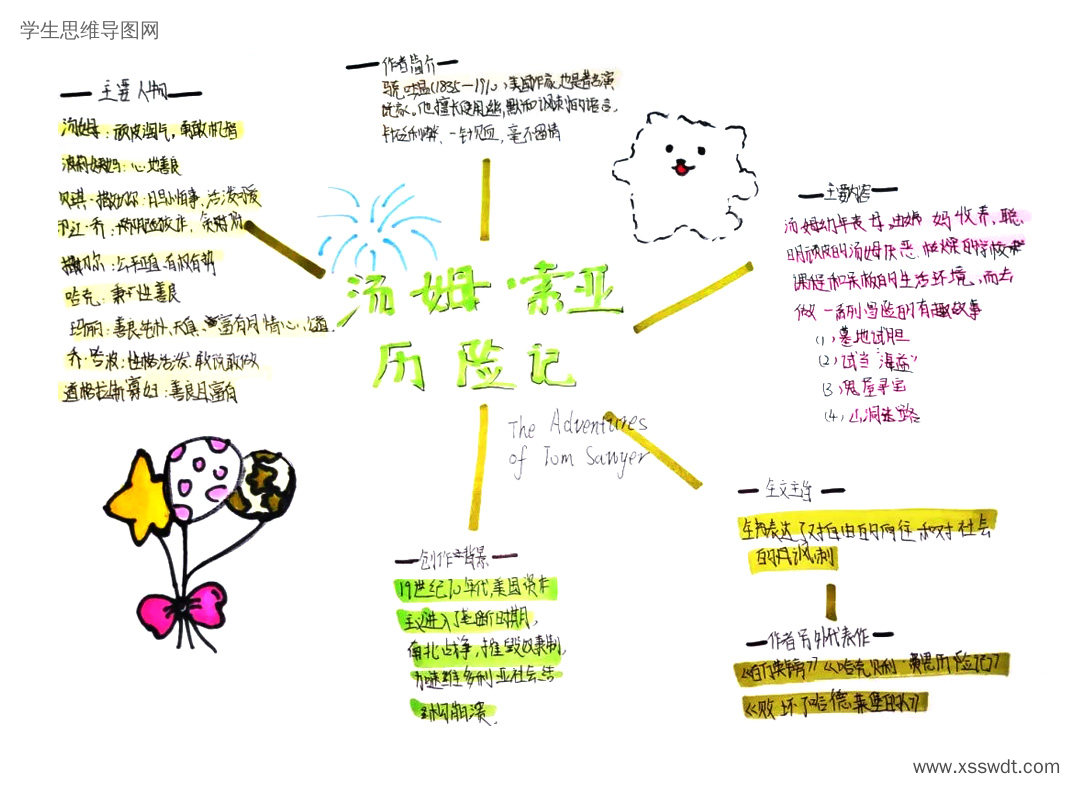 学生思维导图网
主要人物
汤姆：顽皮淘气，勇敢机智
波莉姨妈：心地善良
贝琪·撒切尔：胆小怕事，活泼可爱
撒切尔：公平正直，有权有势
哈克：秉性善良
玛丽：善良纯朴，天真，富有同情心，公道
乔·哈波：性格活泼，敢说敢做
道格拉斯寡妇：善良且富有
作者简介
马克·吐温(1835—1910)美国作家,也是著名演
说家。他擅长使用幽默和讽刺的语言，
针砭时弊、一针见血，毫不留情
汤姆·索亚
历险记
The Adventures
of Tom Sawyer
主要内容
汤姆幼年丧母，由姨妈收养，聪
明顽皮的汤姆厌恶枯燥的学校
课程和呆板的生活环境，而去
做一系列冒险的有趣故事
(1)墓地试胆
(2)试当“海盗”
(3)鬼屋寻宝
(4)山洞迷路
全文主旨
全书表达了对自由的向往和对社会
的讽刺
作者另外代表作
《百万英镑》《哈克贝利·费恩历险记》
《败坏了哈德莱堡的人》
创作背景
19世纪70年代，美国资本
主义进入了垄断时期，
南北战争，摧毁奴隶制，
加速维多利亚社会结
构崩溃。
www.xsswdt.com